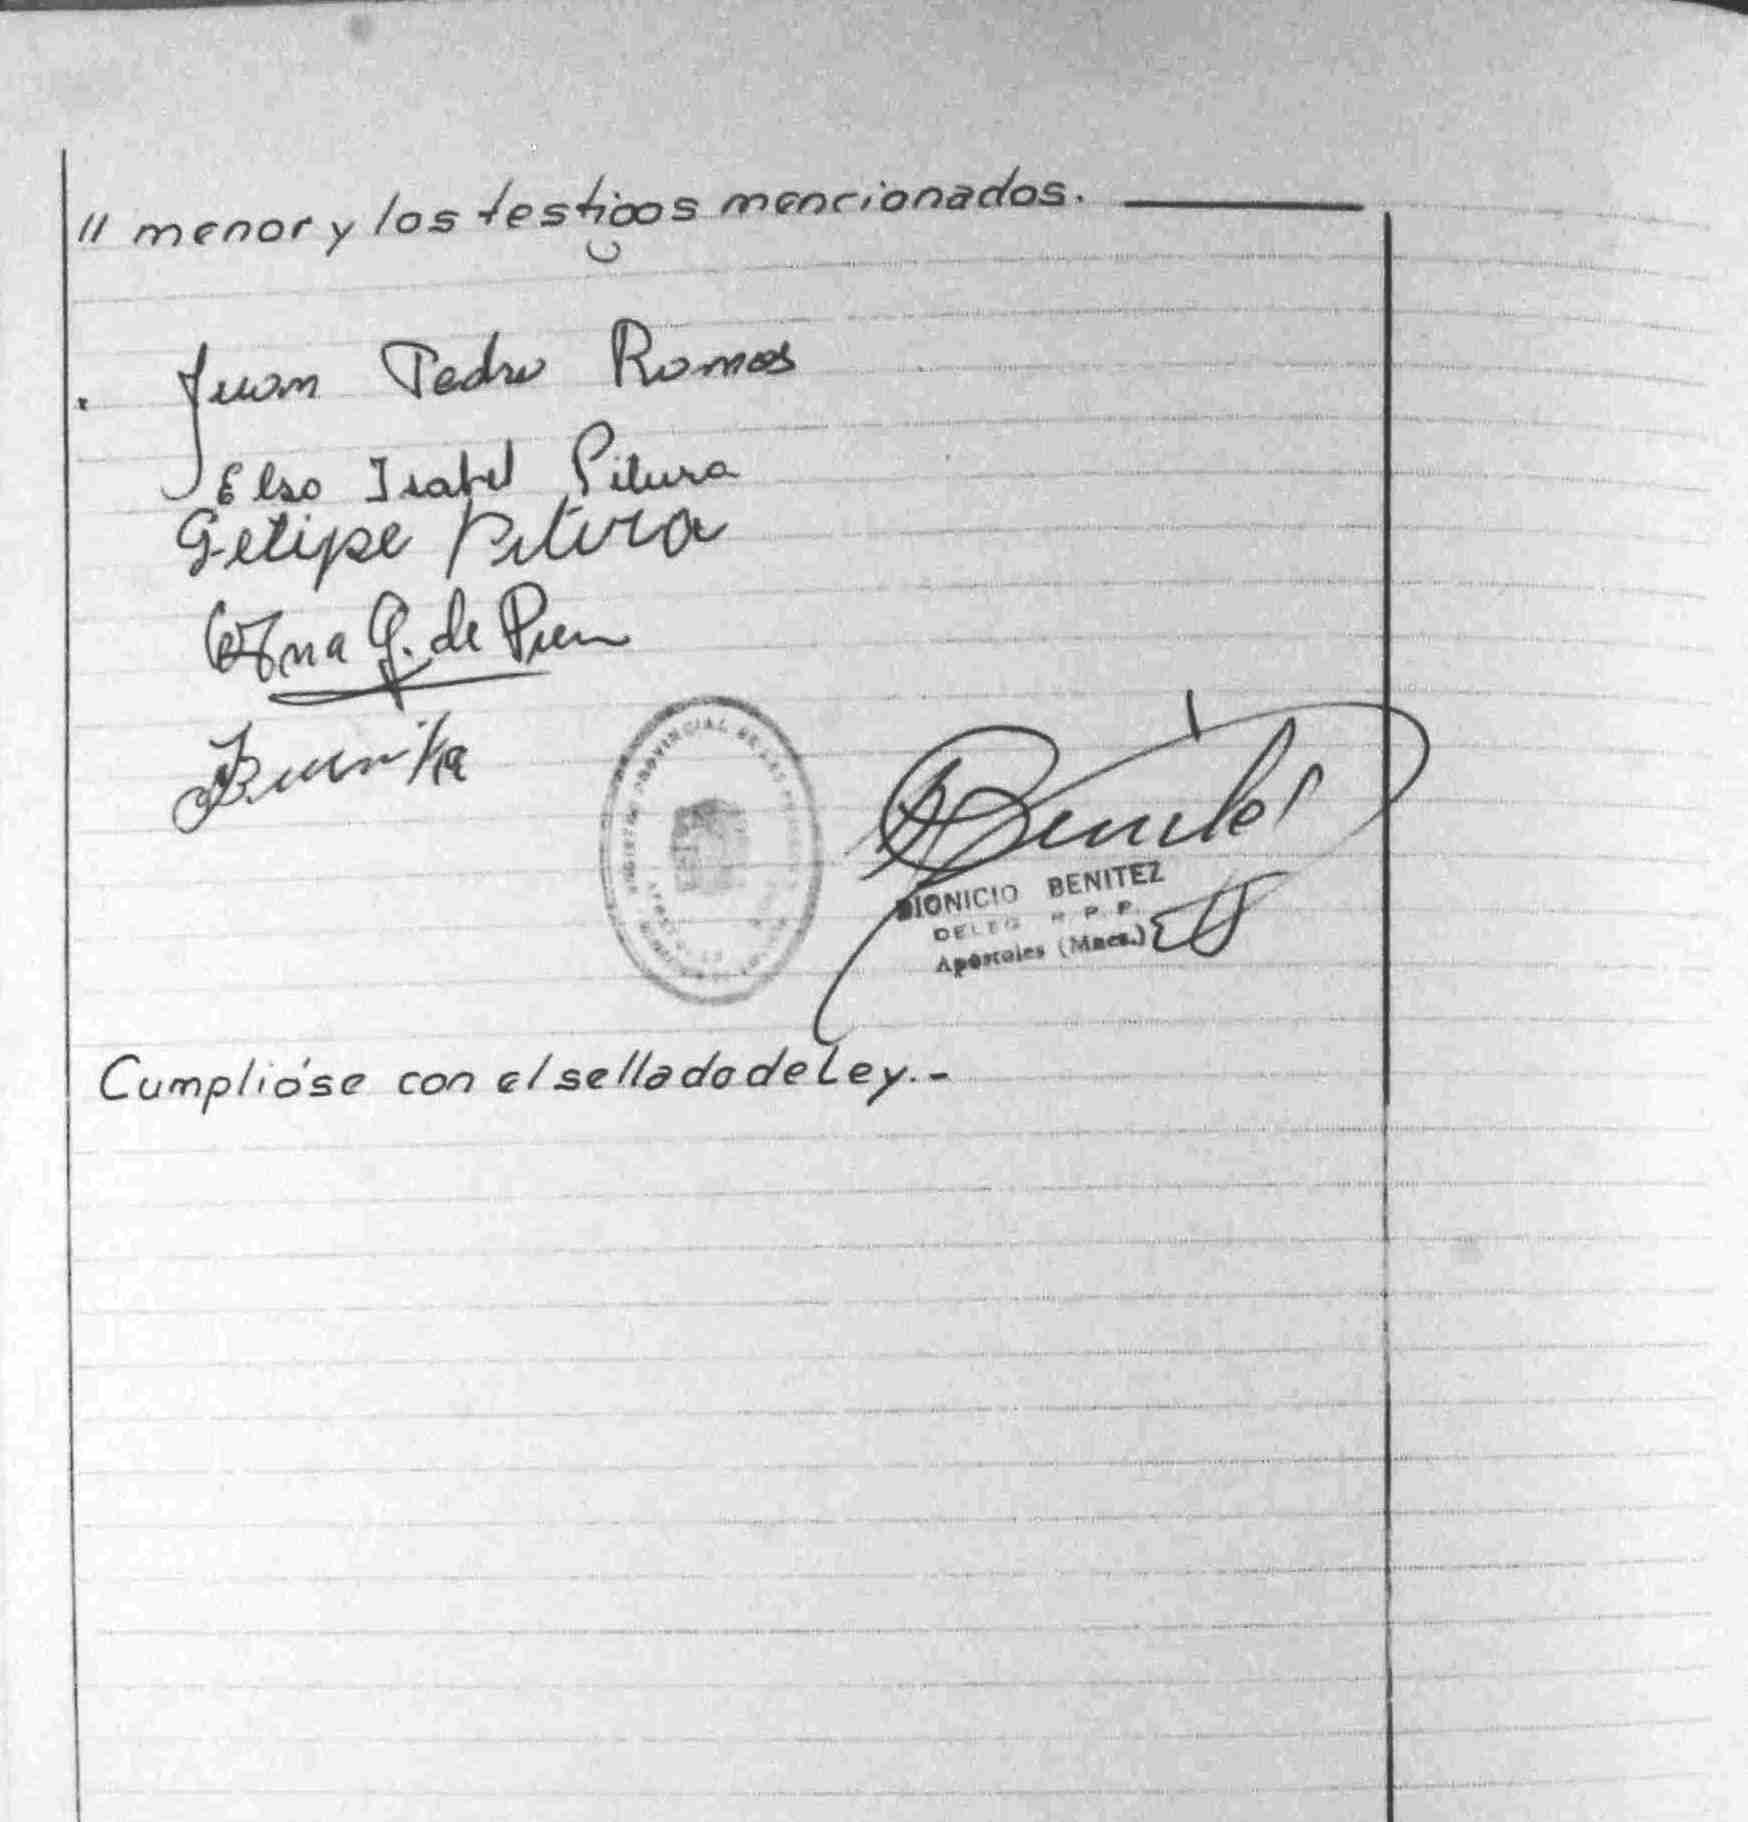 // menor y los testigos mencionados.
Juan Pedro Ramos
Elsa Isabel Pitura
Felipe Pitura
Ana G. de
REGISTRO PROVINCIAL DE LAS
Benitez
DIONICIO BENITEZ
DELEG. R. P. P.
Apóstoles (Mnes.)
Cumplióse con el sellado de Ley.-